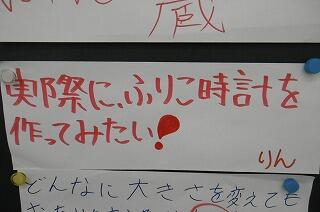 蔵
実際に、ふりこ時計を
作ってみたい!
りん
どんなに大きさを変えても